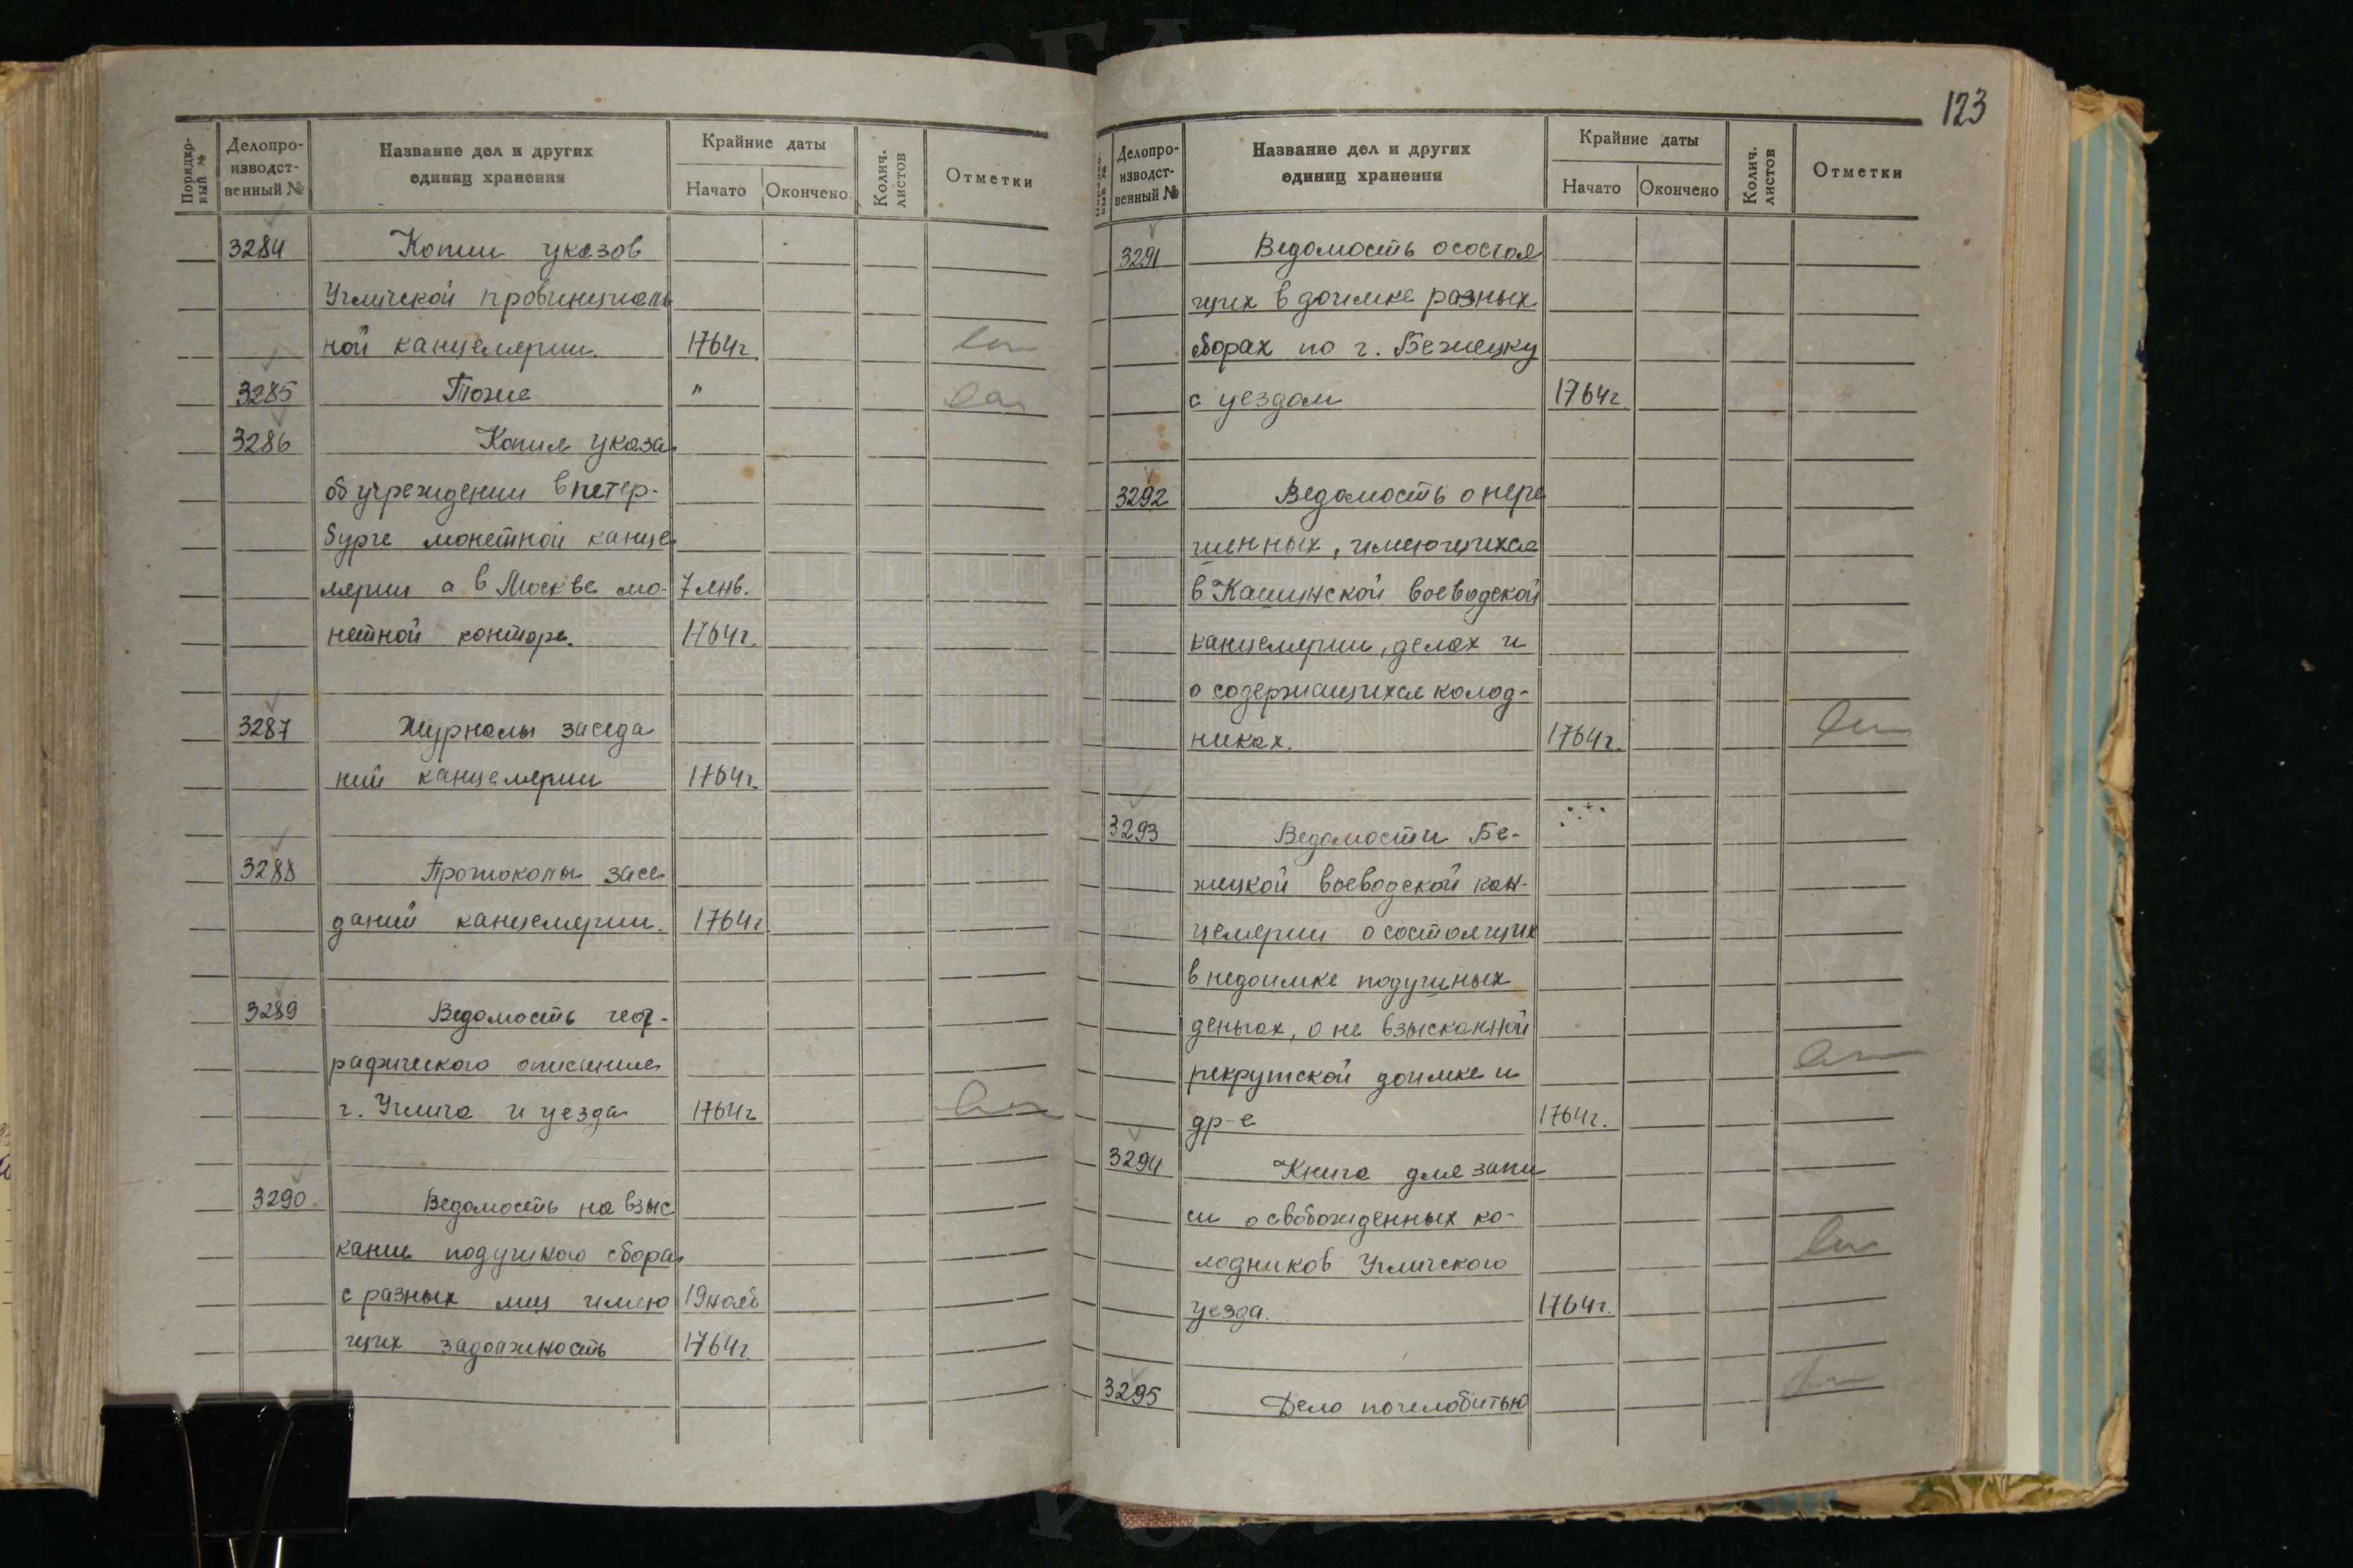 123
Порядко-
вый №
Делопро-
изводст-
венный №
Название дел и других
единиц хранения
Крайние даты
Начато
Окончено
Колич.
листов
Отметки
3284 Копии указов
Угличской провинциаль
ной канцелярии. 1764г.
3285 Тоже "
3286 Копия указа
об учреждении в петер-
бурге монетной канце
лярии а в Москве мо- 7 янв.
нетной конторе. 1764г.
3287 Журналы заседа
ний канцелярии 1764г.
3288 Протоколы засе
даний канцелярии. 1764г
3289 Ведомость геог-
рафического описания
г. Углича и уезда 1764г
3290. Ведомость на взыс
кание подушного сбора
с разных лиц имею 19 нояб
щих задолжность 1764г.
Делопро-
изводст-
венный №
Название дел и других
единиц хранения
Крайние даты
Начато
Окончено
Колич.
листов
Отметки
3291 Ведомость о состоя
щих в доимке разных
сборах по г. Бежецку
с уездом 1764г
3292 Ведомость о нере
шенных, имеющихся
в Кашинской воеводской
канцелярии, делах и
о содержащихся колод-
никах. 1764г.
3293 Ведомости Бе-
жецкой воеводской кан-
целярии о состоящих
в недоимке подушных
деньгах, о не взысканной
рекрутской доимке и
др-е 1764г.
3294 Книга для запи
си освобожденных ко-
лодников Угличского
уезда. 1764г.
3295 Дело по челобитью